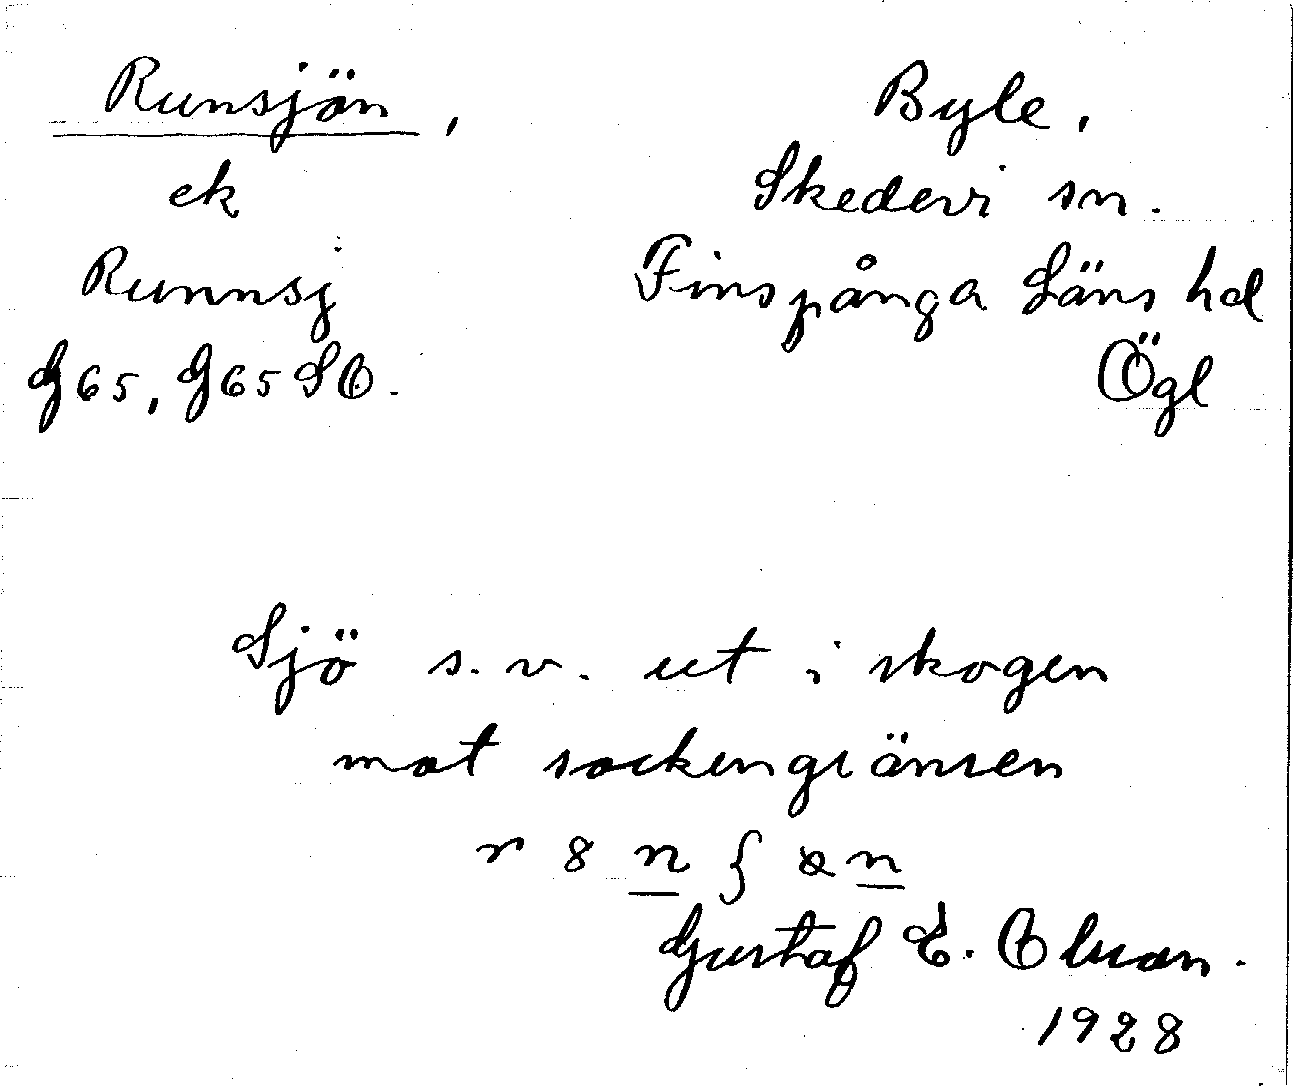 Runsjön,
ek
Runnsj
G65, G65 SO.
Byle.
Skedevi sn.
Finspånga Läns hd
Ögl
Sjö s.v. ut i skogen
mot sockengränsen
Gustaf E. Olsson.
1928